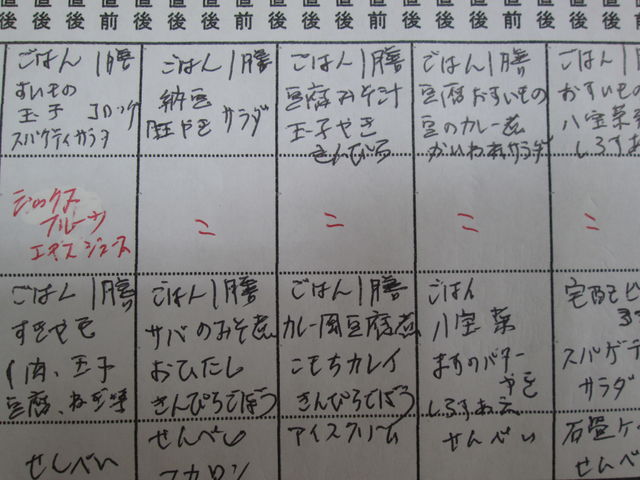 直後 直前 直後 直後 直前 直後 直後 直前 直後 直後 直前 直後 直後 直前 直後
ごはん 1膳
すいもの
玉子 コロッケ
スパゲティサラダ
ごはん 1膳
納豆
玉子やき サラダ
ごはん 1膳
豆腐みそ汁
玉子やき
きんぴら
ごはん 1膳
豆腐おすいもの
豆のカレー煮
かいわれサラダ
ごはん 1膳
おすいもの
八宝菜
ミックス
フルーツ
ジュース
〃
〃
〃
〃
ごはん 1膳
すきやき
肉、玉子
豆腐、ねぎ等
ごはん 1膳
サバのみそ煮
おひたし
きんぴらごぼう
ごはん 1膳
カレー風豆腐煮
こもちカレイ
きんぴらごぼう
ごはん
八宝菜
バター
やき
宅配ピ
スパゲテ
サラダ
せんべい
せんべい
マカロン
アイスクリーム
せんべい
石畳ケ
せんべ